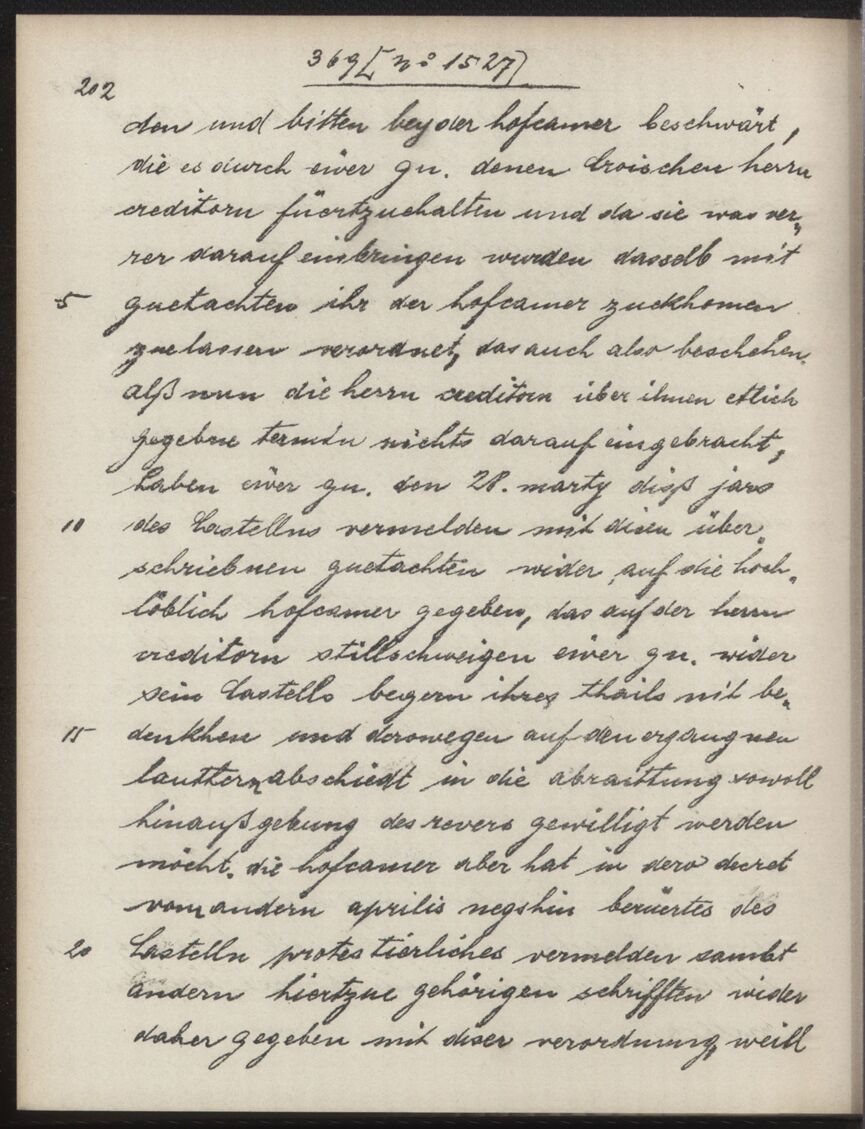 369 [nº 1527]
202
den und bitten bey der hofcamer beschwärt,
die es durch eüer gn. denen Croischen herrn
creditorn füertzuehalten und da sie was ver„
rer darauf einbringen wurden dasselb mit
5 guetachten ihr der hofcamer zuekhomen
zue lassen verordnet, das auch also beschehen.
alß nun die herrn creditorn über ihnen etlich
gegebne termin nichts darauf eingebracht,
haben eüer gn. den 28. marty diß jars
10 des Castellns vermelden mit diesen über„
schriebnen guetachten wider auf die hoch„
löblich hofcamer gegeben, das auf der herrn
creditorn stillschweigen eüer gn. wider
sein Castells begern ihres thails nit be„
15 denkhen und derowegen auf den ergangnen
lauttern abschiedt in die abraittung sowoll
hinaußgebung des revers gewilligt werden
möcht. die hofcamer aber hat in dero decret
vom andern aprilis negsthin berüertes des
20 Castelln protestierliches vermelden sambt
andern hiertzue gehörigen schrifften wider
daher gegeben mit diser verordnung, weill